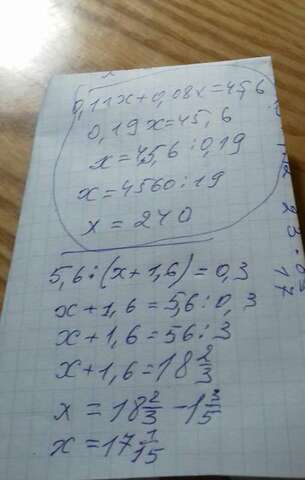 0,11x+0,08x=45,6
0,19x=45,6
x=45,6:0,19
x=4560:19
x=240
5,6:(x+1,6)=0,3
x+1,6=5,6:0,3
x+1,6=56:3
x+1,6=18 2/3
x=18 2/3-1 3/5
x=17 1/15